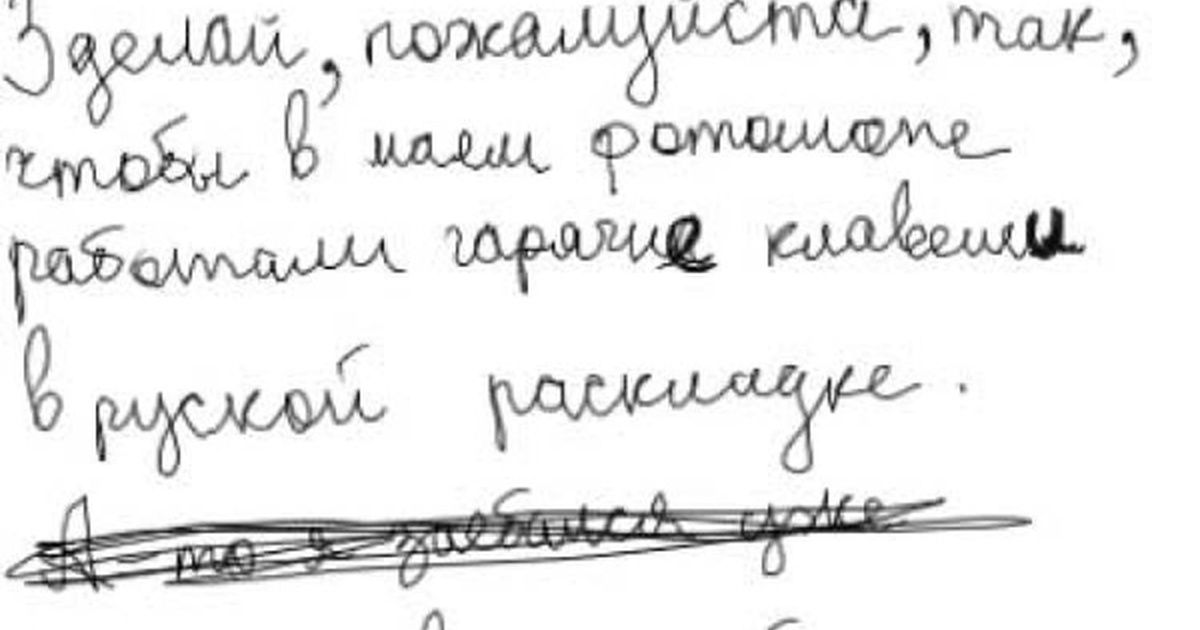 Зделай, пожалуйста, так,
чтобы в маем фоташопе
работали гарячие клавеши
в руской раскладке.
А-то я заебался уже